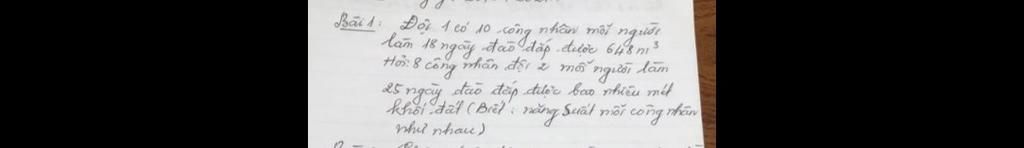 Bài 1: Đội 1 có 10 công nhân mỗi người
làm 18 ngày đào đắp được 648 m³
Hỏi: 8 công nhân đội 2 mỗi người làm
25 ngày đào đắp được bao nhiêu mét
khối đất (Biết: năng suất mỗi công nhân
như nhau)